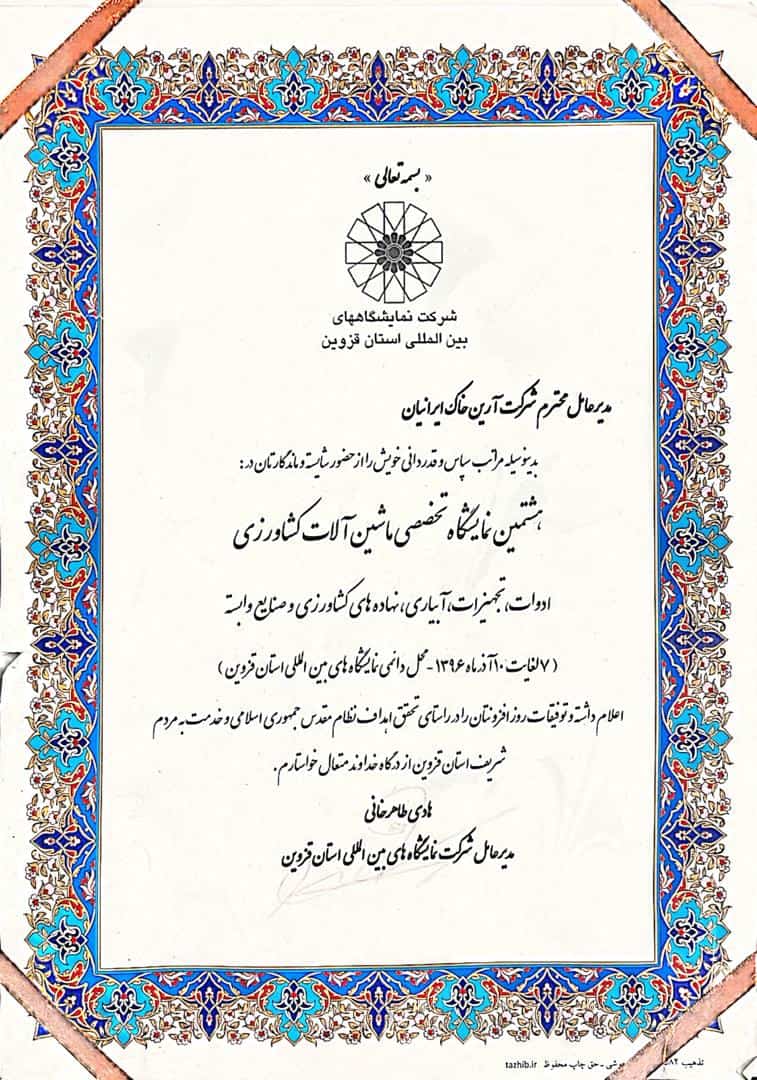 « بسمه تعالی »
شرکت نمایشگاههای
بین المللی استان قزوین
مدیرعامل محترم شرکت آرین خاک ایرانیان
بدینوسیله مراتب سپاس و قدردانی خویش را از حضور شایسته و ماندگارتان در :
هشتمین نمایشگاه تخصصی ماشین آلات کشاورزی
ادوات، تجهیزات، آبیاری، نهاده های کشاورزی و صنایع وابسته
( ۷ لغایت ۱۰ آذر ماه ۱۳۹۶ - محل دائمی نمایشگاه های بین المللی استان قزوین )
اعلام داشته و توفیقات روز افزونتان را در راستای تحقق اهداف نظام مقدس جمهوری اسلامی و خدمت به مردم
شریف استان قزوین از درگاه خداوند متعال خواستارم.
هادی طاهرخانی
مدیرعامل شرکت نمایشگاه های بین المللی استان قزوین
تذهیب ۵۸۲ - حق چاپ محفوظ tazhib.ir